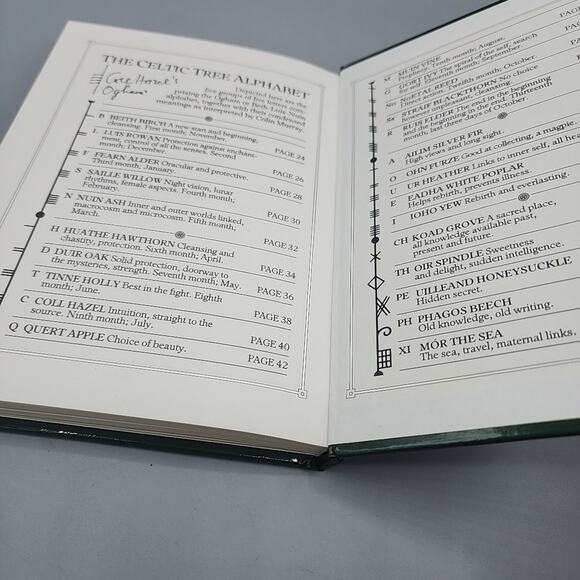 THE CELTIC TREE ALPHABET
Ogham
Depicted here are the
five groups of five letters com-
prising the Ogham or Beth, Luis, Nuin,
alphabet, together with their condensed
meanings as interpreted by Colin Murray.
B BEITH BIRCH A new start and beginning,
cleansing. First month; November. PAGE 24
L LUIS ROWAN Protection against enchant-
ment, control of all the senses. Second
month; December. PAGE 26
F FEARN ALDER Oracular and protective.
Third month; January. PAGE 28
S SAILLE WILLOW Night vision, lunar
rhythms, female aspects. Fourth month;
February. PAGE 30
N NUIN ASH Inner and outer worlds linked,
macrocosm and microcosm. Fifth month;
March. PAGE 32
H HUATHE HAWTHORN Cleansing and
chastity, protection. Sixth month; April. PAGE 34
D DUIR OAK Solid protection, doorway to
the mysteries, strength. Seventh month; May. PAGE 36
T TINNE HOLLY Best in the fight. Eighth
month; June. PAGE 38
C COLL HAZEL Intuition, straight to the
source. Ninth month; July. PAGE 40
Q QUERT APPLE Choice of beauty. PAGE 42
M MUIN VINE
Prophecy. Tenth month; August. PAGE
G GORT IVY The spiral of the self, search
for self. Eleventh month; September. PAGE
NG NGETAL REED
Direct action. Twelfth month; October.
SS STRAIF BLACKTHORN No choice
however unpleasant, cleansing.
R RUIS ELDER The end in the beginning
and the beginning in the end. Thirteenth
month, the last three days of October
A AILIM SILVER FIR
High views and long sight.
O OHN FURZE Good at collecting, a magpie.
U UR HEATHER Links to inner self, all
E EADHA WHITE POPLAR
Helps rebirth, prevents illness.
I IOHO YEW Rebirth and everlasting.
CH KOAD GROVE A sacred place,
all knowledge available past,
present and future.
TH OIR SPINDLE Sweetness
and delight, sudden intelligence.
PE UILLEAND HONEYSUCKLE
Hidden secret.
PH PHAGOS BEECH
Old knowledge, old writing.
XI MÓR THE SEA
The sea, travel, maternal links.